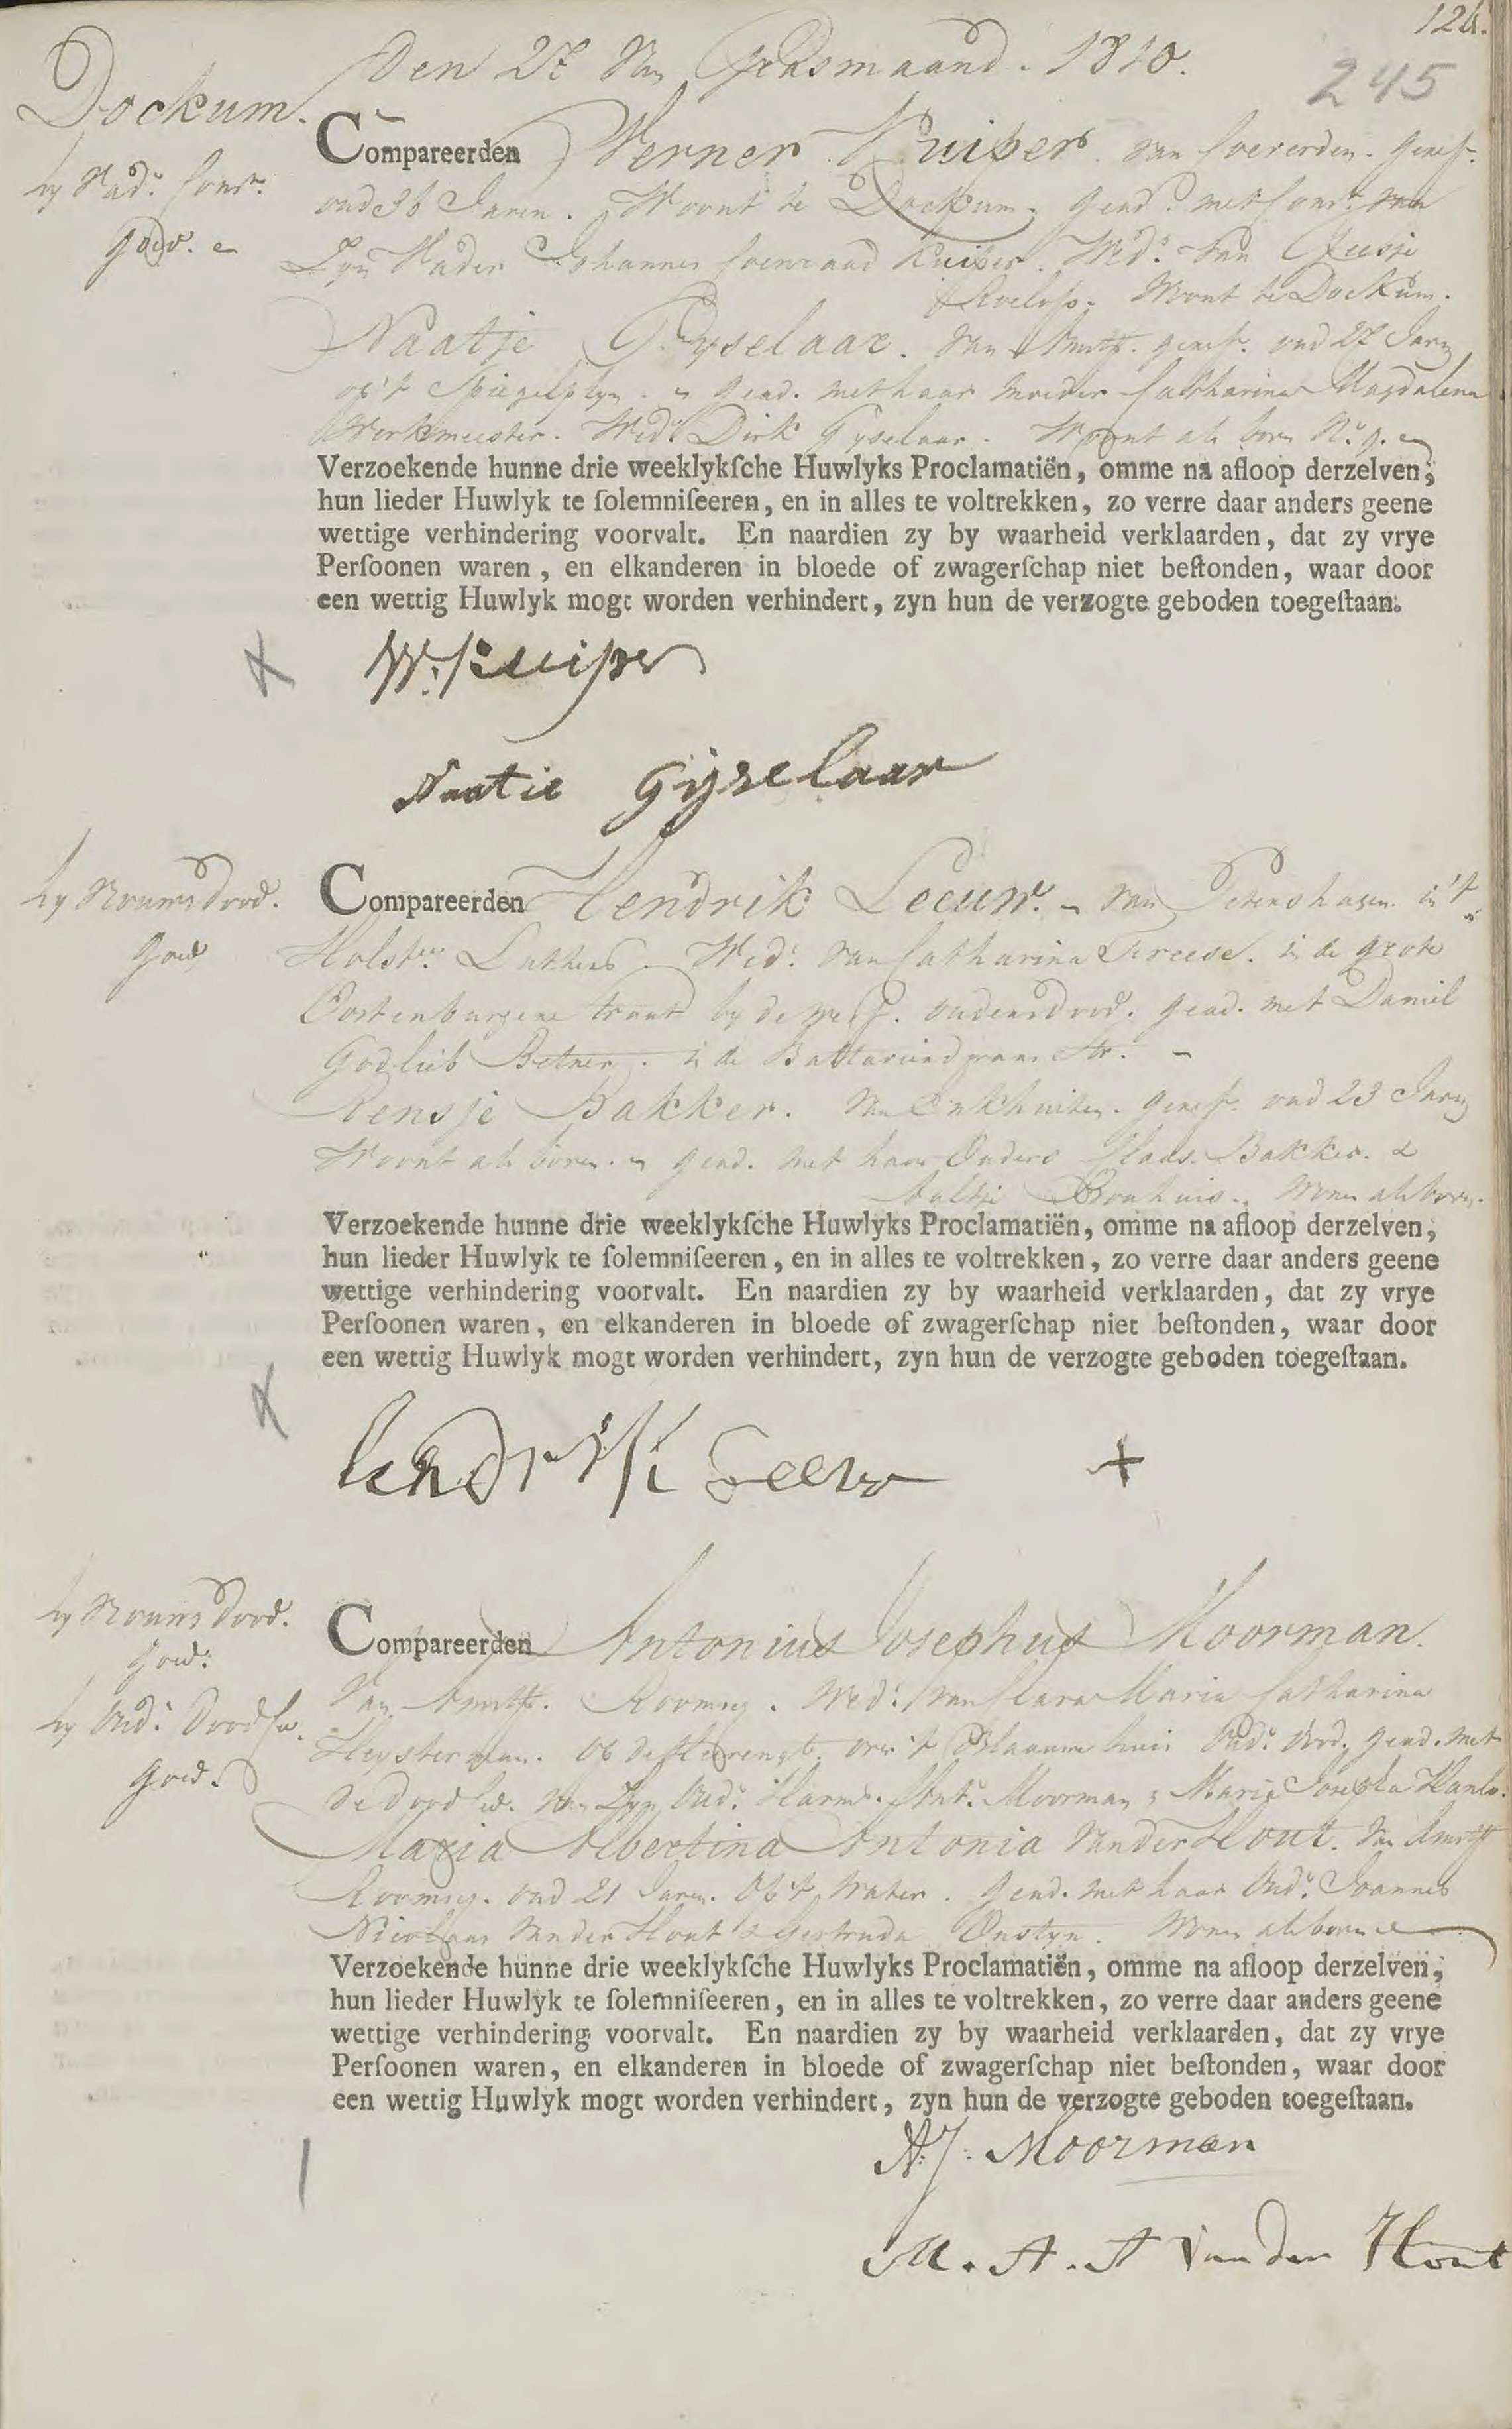 124.
245
Den 27 van Grasmaand. 1810.
Dockum.
Compareerden Werner Kuiper. van Coeverden. geref.
hy Vad.s Cons.t
goed. en
oud 36 Jaren. Woont te Dockum. gead. met Cons.t van
Zyn Vader Johannes Coenraad Kuiper. Wed.r van Geesje
Roelofs. Woont te Dockum.
Naatje Gyselaar. van Amst. geref. oud 27 Jaren
op't Spiegelplyn. en gead. met haar moeder Catharina Magdalena
Werkmeester. Wed.e Dirk Gyselaar. Woont als boven
Verzoekende hunne drie weeklykſche Huwlyks Proclamatiën, omme na afloop derzelven,
hun lieder Huwlyk te ſolemniſeeren, en in alles te voltrekken, zo verre daar anders geene
wettige verhindering voorvalt. En naardien zy by waarheid verklaarden, dat zy vrye
Perſoonen waren, en elkanderen in bloede of zwagerſchap niet beſtonden, waar door
een wettig Huwlyk mogt worden verhindert, zyn hun de verzogte geboden toegeſtaan.
W: Kuiper
Naatie Gijzelaar
hy Vrouws dood.
goed
Compareerden Hendrik Leeuw. van Petershagen. in 't
Holst.n Luthers. Wed.r van Catharina Freese. in de grote
Oostenburgere straat by de werf. ouders dood. gead. met Daniel
Godlieb Betner. in de
Rensje Bakker. van Enkhuisen. geref. oud 23 Jaren
Woont als boven. en gead. met haar Ouders Klaas Bakker. &
Aaltje Brouhuis. Wonen als boven.
Verzoekende hunne drie weeklykſche Huwlyks Proclamatiën, omme na afloop derzelven,
hun lieder Huwlyk te ſolemniſeeren, en in alles te voltrekken, zo verre daar anders geene
wettige verhindering voorvalt. En naardien zy by waarheid verklaarden, dat zy vrye
Perſoonen waren, en elkanderen in bloede of zwagerſchap niet beſtonden, waar door
een wettig Huwlyk mogt worden verhindert, zyn hun de verzogte geboden toegeſtaan.
Hendrik Leeuw +
hy Vrouws dood.
goed.
hy Oud.s Dood Ced.
goed.
Compareerden Antonius Josephus Moorman.
Van Amst. Roomsg. Wed.r van Clara Maria Catharina
Heysterman. op de Heerengt. over 't Blaauwe huis Oud.s dood. gead. met
de dood Ced. van Zyn Oud.s Harm. Ant.s Moorman & Maria Josepha Hanlo.
Maria Albertina Antonia van der Hout. van Amst
Roomsg. oud 21 Jaren. Op't Water. gead. met haar Oud.s Joannes
Nicolaas van der Hout & Gertruda Onstyn. Wonen als boven
Verzoekende hunne drie weeklykſche Huwlyks Proclamatiën, omme na afloop derzelven,
hun lieder Huwlyk te ſolemniſeeren, en in alles te voltrekken, zo verre daar anders geene
wettige verhindering voorvalt. En naardien zy by waarheid verklaarden, dat zy vrye
Perſoonen waren, en elkanderen in bloede of zwagerſchap niet beſtonden, waar door
een wettig Huwlyk mogt worden verhindert, zyn hun de verzogte geboden toegeſtaan.
A: J: Moorman
M. A. A van der Hout